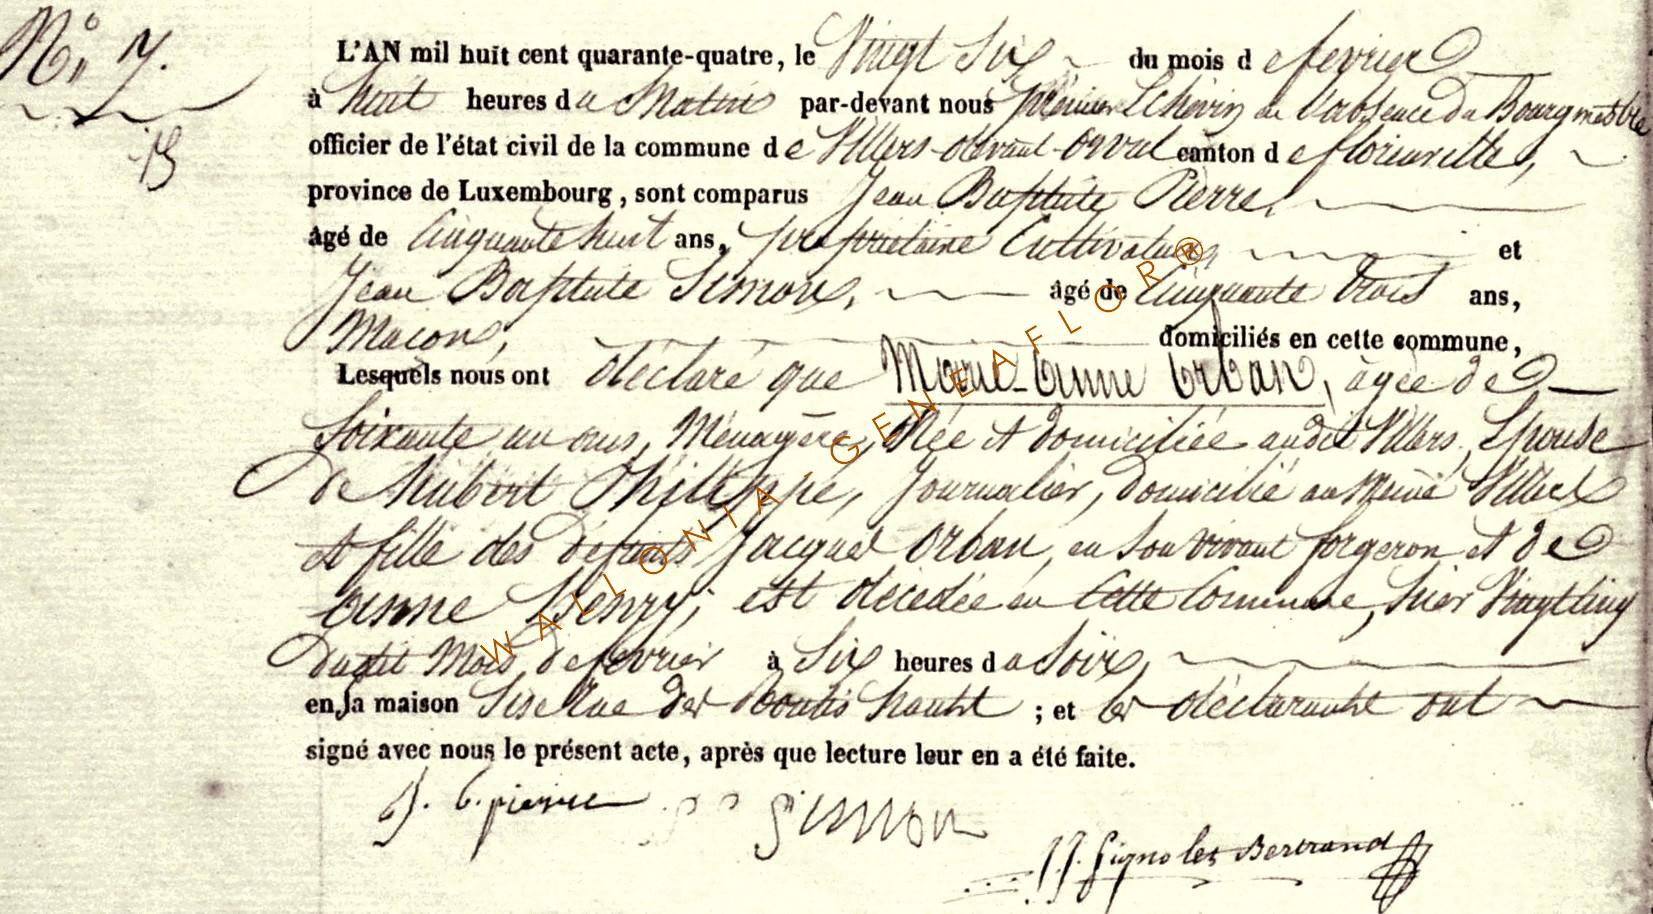 N° 7.
L'AN mil huit cent quarante-quatre, le Vingt Six du mois de fevrier
à huit heures du Matin par-devant nous premier Echevin en l'absence du Bourgmestre
15
officier de l'état civil de la commune de Villers-devant-Orval canton de florenville,
province de Luxembourg, sont comparus Jean Baptiste Pierre,
âgé de Cinquante huit ans, propriétaire Cultivateur, et
Jean Baptiste Simon, âgé de Cinquante trois ans,
Macon, domiciliés en cette commune,
Lesquels nous ont déclaré que Marie-Anne Orban, agée de
Soixante un ans, Ménagère, Née et domiciliée audit Villers, Epouse
de Hubert Philippe, Journalier, domicilié au Même Villers
et fille des défunts Jacques Orban, en son vivant forgeron et de
Anne Henry; est décédée en Cette Commune, hier Vingt Cinq
dudit Mois de fevrier à Six heures du Soir,
en sa maison Sise Rue des haut; et les déclarants ont
signé avec nous le présent acte, après que lecture leur en a été faite.
J. b. pierre Simon
Bertrand
WALLONIA GENEAFLOR®